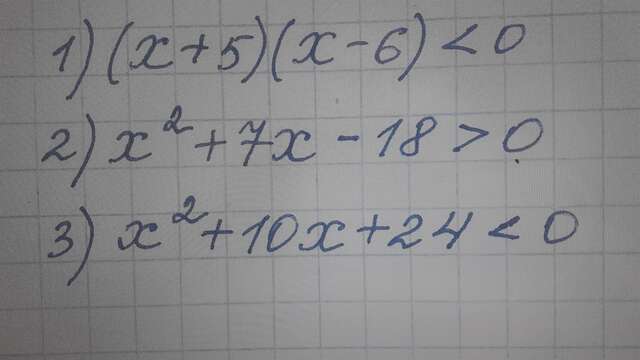 1) (x+5)(x-6) < 0
2) x² + 7x - 18 > 0
3) x² + 10x + 24 < 0